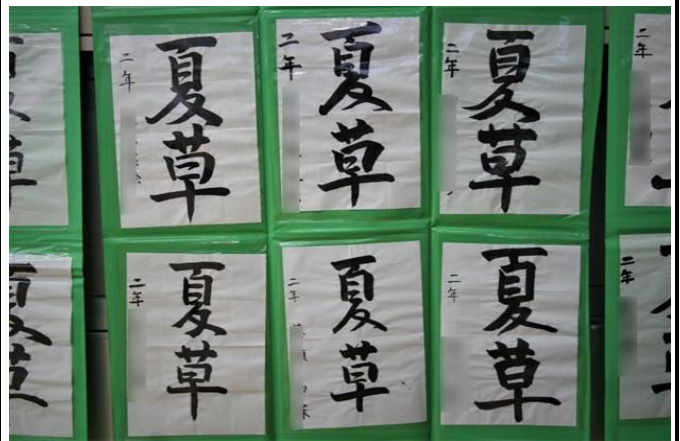 二年
夏草
二年
夏草
二年
夏草
二年
夏草
二年
夏草
二年
夏草
二年
夏草
二年